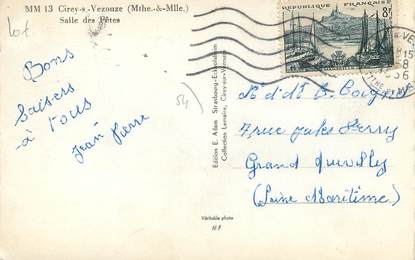 MM 13 Cirey-s.-Vezouze (Mthe.-&-Mlle.)
Salle des Fêtes
lot
Bons
baisers
à tous
Jean Pierre
54
Edition E. Adam Strasbourg-Eckbolsheim
Collection Lemaire, Cirey-sur-Vezouze
Véritable photo
REPUBLIQUE FRANÇAISE
8f
7 rue Jules Ferry
Grand Quevilly
(Seine Maritime)